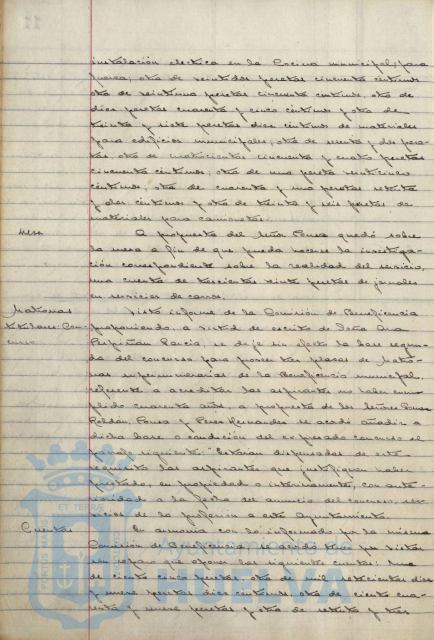 instalación electrica en la Cocina municipal, para
fuerza, otra de veintidos pesetas cincuenta centimos
otra de veintiuna pesetas cincuenta centimos, otra de
diez pesetas cuarenta y cinco centimos y otra de
treinta y siete pesetas diez centimos de materiales
para edificios municipales, otra de sesenta y dos pese-
tas, otra de cuatrocientas cincuenta y cuatro pesetas
cincuenta centimos, otra de una peseta veinticinco
centimos, otra de cuarenta y una pesetas setenta
y dos centimos y otra de treinta y seis pesetas de
materiales para camionetas.
Mesa
A propuesta del Señor Ponce quedó sobre
la mesa a fin de que pueda hacerse la investiga-
ción correspondiente sobre la realidad del servicio,
una cuenta de trescientas veinte pesetas de jornales
en servicios de carros.
Matronas
titulares: Con-
curso
Visto informe de la Comisión de Beneficencia
proponiendo, a virtud de escrito de Doña Ana
Perpiñan Garcia, se deje sin efecto la base segun-
da del concurso para proveer tres plazas de Matro-
nas supernumerarias de la Beneficencia municipal,
referente a acreditar las aspirantes no haber cum-
plido cuarenta años, a propuesta de los señores Ponce
Roldán, Ponce y Perez Hernandez se acordó añadir a
dicha base o condición del expresado concurso el
párrafo siguiente: "Estarán dispensadas de este
requisito las aspirantes que justifiquen haber
prestado, en propiedad o interinamente, con ante-
rioridad a la fecha del anuncio del concurso, ser-
vicios de la profesión a este Ayuntamiento.
Cuentas
En armonia con lo informado por la misma
Comisión de Beneficencia se acordó
sin reparo que oponer las siguientes cuentas: Una
de ciento cinco pesetas, otra de mil setecientas diez
y nueve pesetas diez centimos, otra de ciento cua-
renta y nueve pesetas y otra de setenta y tres
PORTUS
ET TERRAE
Ayuntamiento de
HUELVA